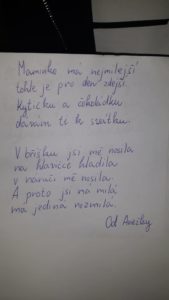 Maminko má nejmilejší
tohle je pro den zdejší.
Kytičku a čokoládku
dávám te k svátku.
V bříšku jsi mě nosila
na hlavičce hladila
v náručí mě nosila.
A proto jsi má milá
má jediná
Od Anežky